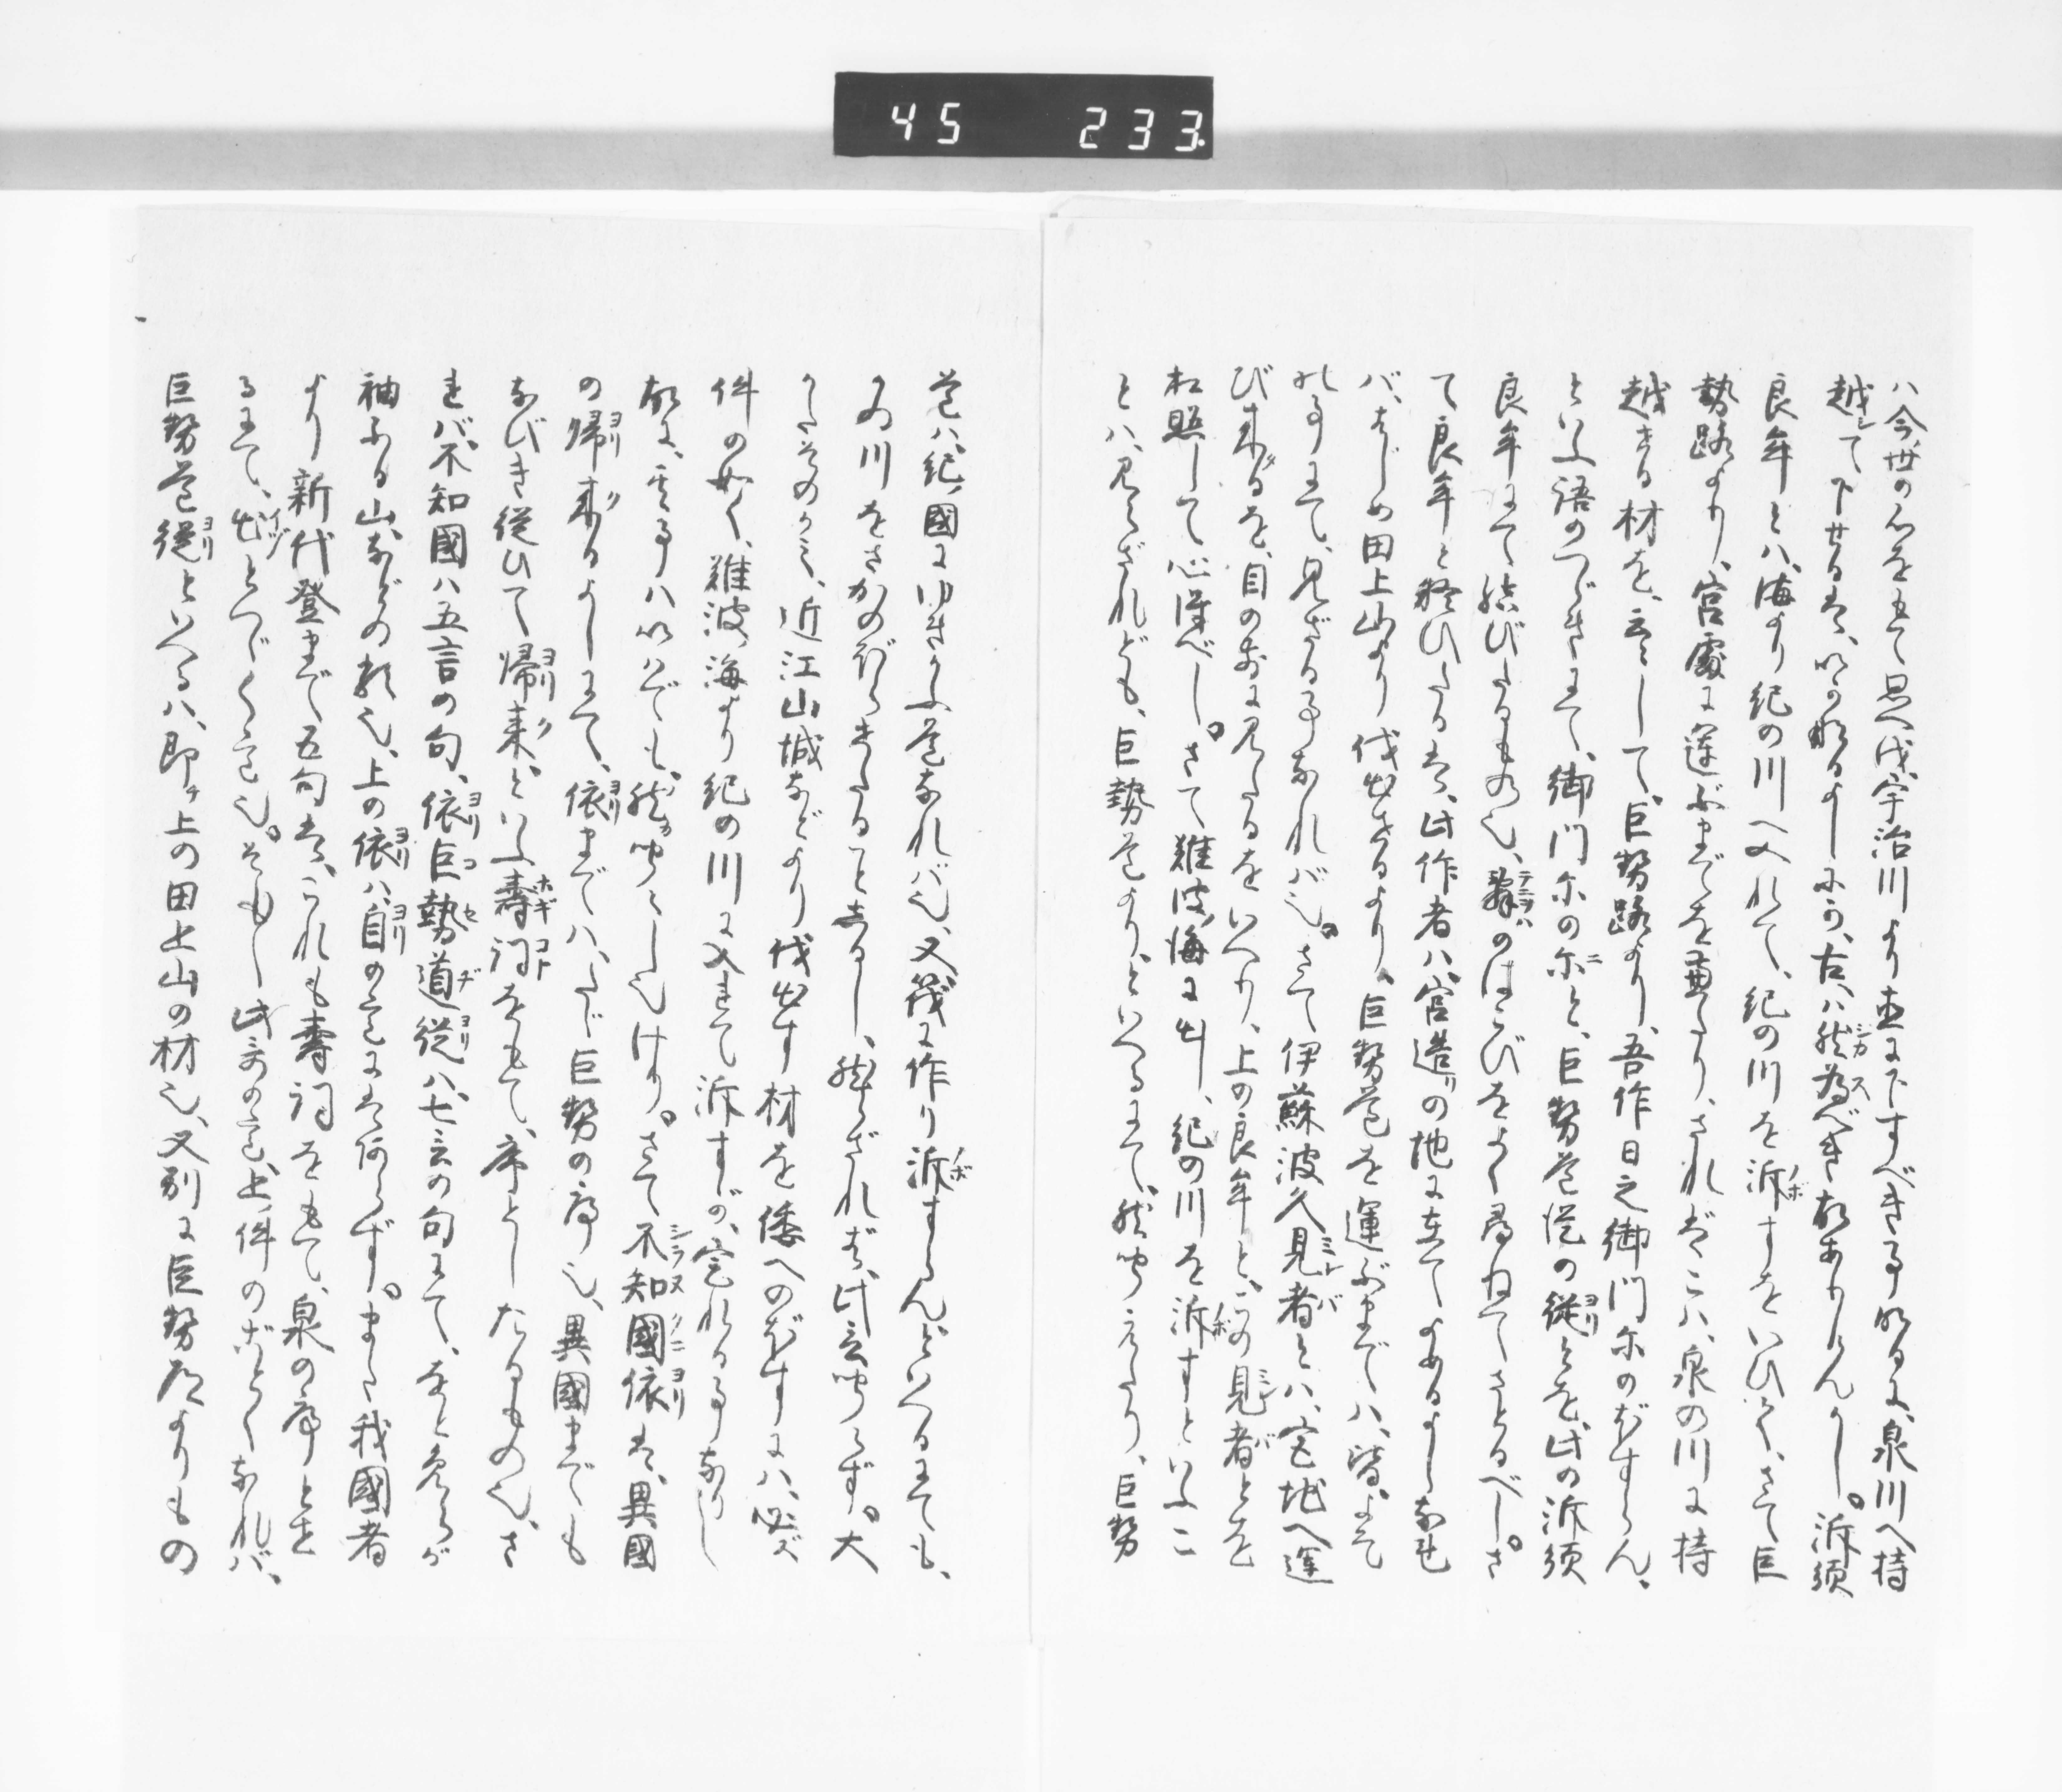 45 233
ハ今世の心を以て思へば、宇治川より直に下すべき事なるに、泉川へ持
越して下せるは、いかなるよしにか、古ハ然為べき故ありけんかし。泝須
良牟とハ、海より紀の川へ入れて、紀の川を泝すをいひて、さて巨
勢路より、宮處に運ぶまでを兼たり、されバこハ、泉の川に持
越せる材を、云々して、巨勢路より、吾作日之御門尓のぼすらん、
といふ語のつゞきにて、御門尓の尓と、巨勢道従の従とを、此の泝須
良牟にて結びたるもの也、辞のはこびをよく尋ねてさとるべし。さ
て良牟と疑ひたるは、此作者ハ、宮造りの地に在てよめるよしなれ
バ、はじめ田上山より伐出せるより、巨勢道を運ぶまでハ、皆よそ
の事にて、見ざる事なれバ也。さて伊蘇波久見者とハ、宮地へ運
び来るを、目の前に見たるをいへり、上の良牟と、この見者とを
相照して心得べし。さて難波海に出し、紀の川を泝すといふこ
とハ、見えざれども、巨勢道より、といへるにて、然聞えたり、巨勢
道ハ、紀國にゆきかふ道なれバ也、又筏に作り泝すらんといへるにても、
かの川をさかのぼらせたること著し、然らざれば、此言聞えず。大
かたそのかミ、近江山城などより伐出す材を倭へのぼすにハ、必ズ
件の如く、難波海より紀の川に入れて泝すが、定れる事なりし
故に、其事ハいはでも、然か聞えし也けり。さて不知國依は、異國
の帰来るよしにて、依までハ、たゞ巨勢の序也、異國までも
なびき従ひて帰来、といふ壽詞をもて、序としたるもの也、さ
れバ、不知國ハ五言の句、依巨勢道従ハ、七言の句にて、をとめらが
袖ふる山などの類也、上の依ハ、自の意にはあらず。また我國者
より新代登まで五句は、これも壽詞をもて、泉の序とせ
るにて、出とつゞく意也。そも〳〵此哥の意、上件のごとくなれバ、
巨勢道従といへるハ、即チ上の田上山の材也、又別に巨勢道よりもの